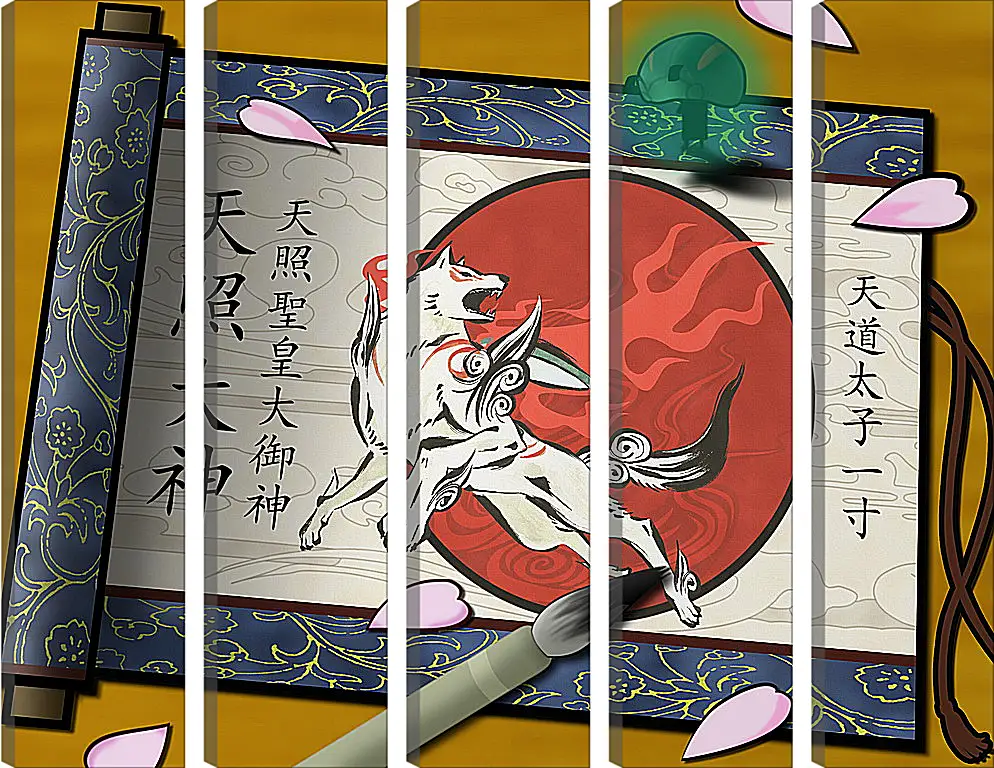 天道太子一寸
天照聖皇大御神
天照大神